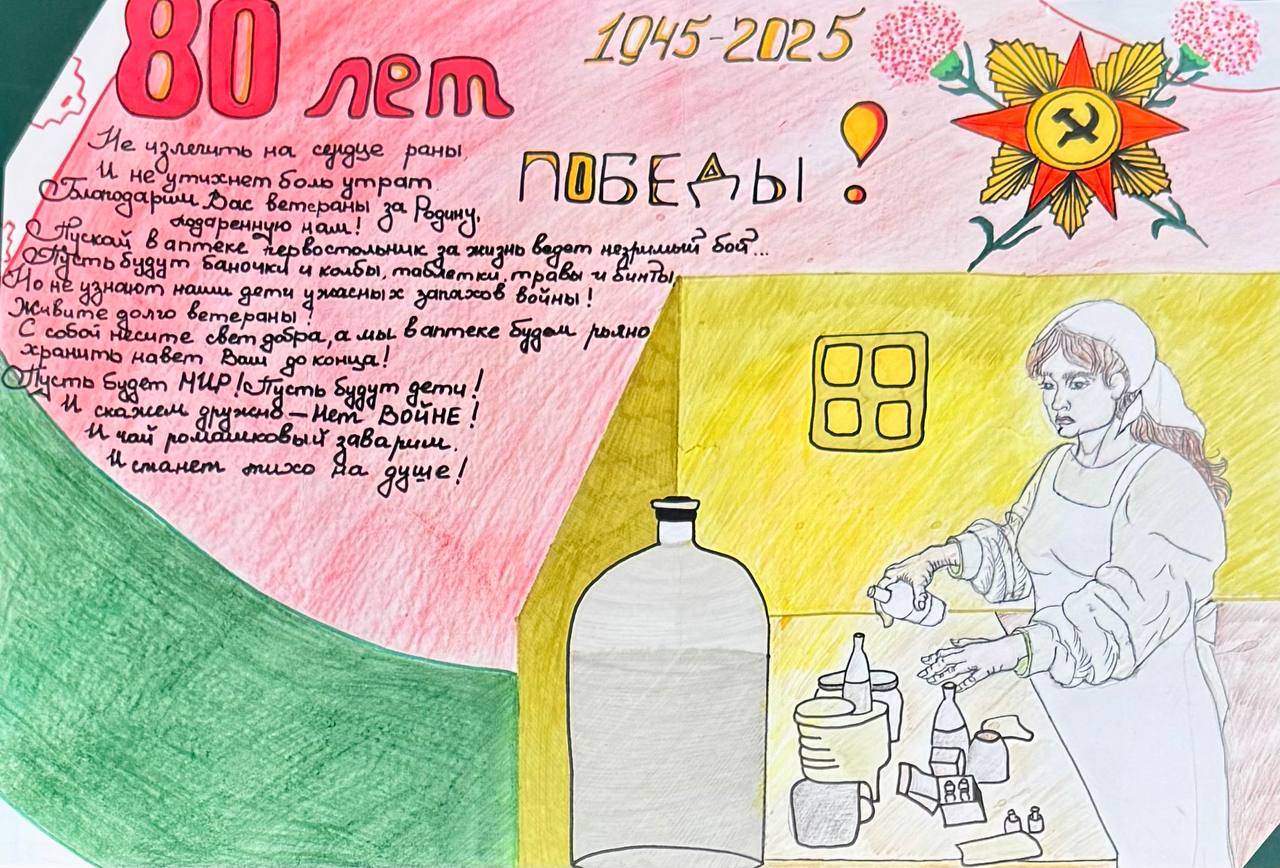 80 лет
1945-2025
ПОБЕДЫ!
Не излечить на сердце раны
И не утихнет боль утрат
Благодарим Вас ветераны за Родину,
подаренную нам!
Пускай в аптеке первостольник за жизнь ведет незримый бой...
Пусть будут баночки и колбы, таблетки, травы и бинты,
Но не узнают наши дети ужасных запахов войны!
Живите долго ветераны!
С собой несите свет добра, а мы в аптеке будем рьяно
хранить навет Ваш до конца!
Пусть будет МИР! Пусть будут дети!
И скажем дружно - Нет ВОЙНЕ!
И чай ромашковый заварим.
И станет тихо на душе!